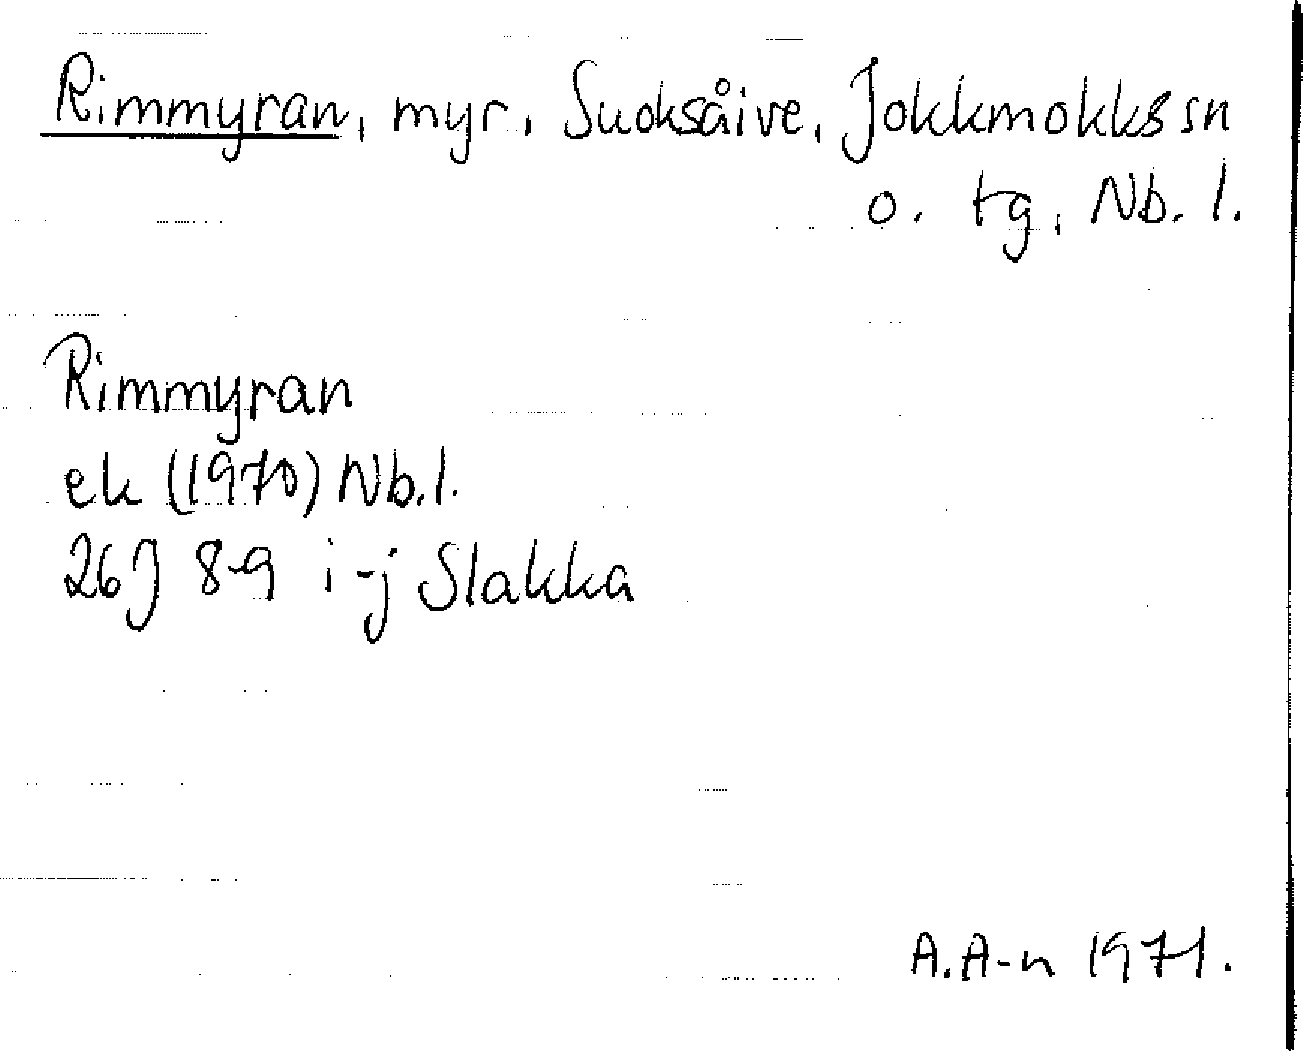 Rimmyran, myr, Suoksåive, Jokkmokks sn
o. tg, Nb. l.
Rimmyran
ek (1970) Nb. l.
26J 8-9 i-j Slakka
A. A-n 1971.